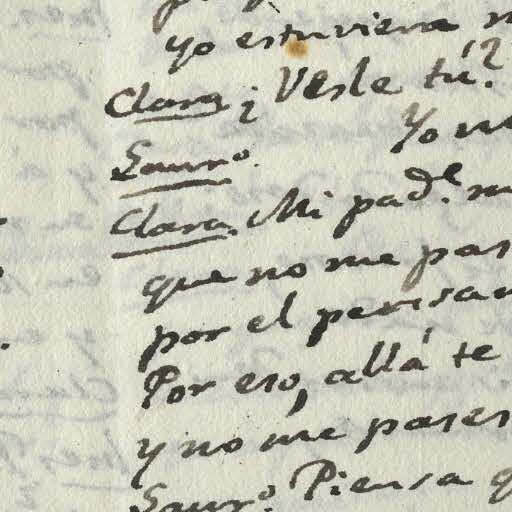 yo estuviera
Clara ¿Vesle tú?
Yo
Saur.º
Clara. Mi pad.e
que no me pas
por el pensa
Por eso, allá te
y no me pases
Saur.º Piensa q